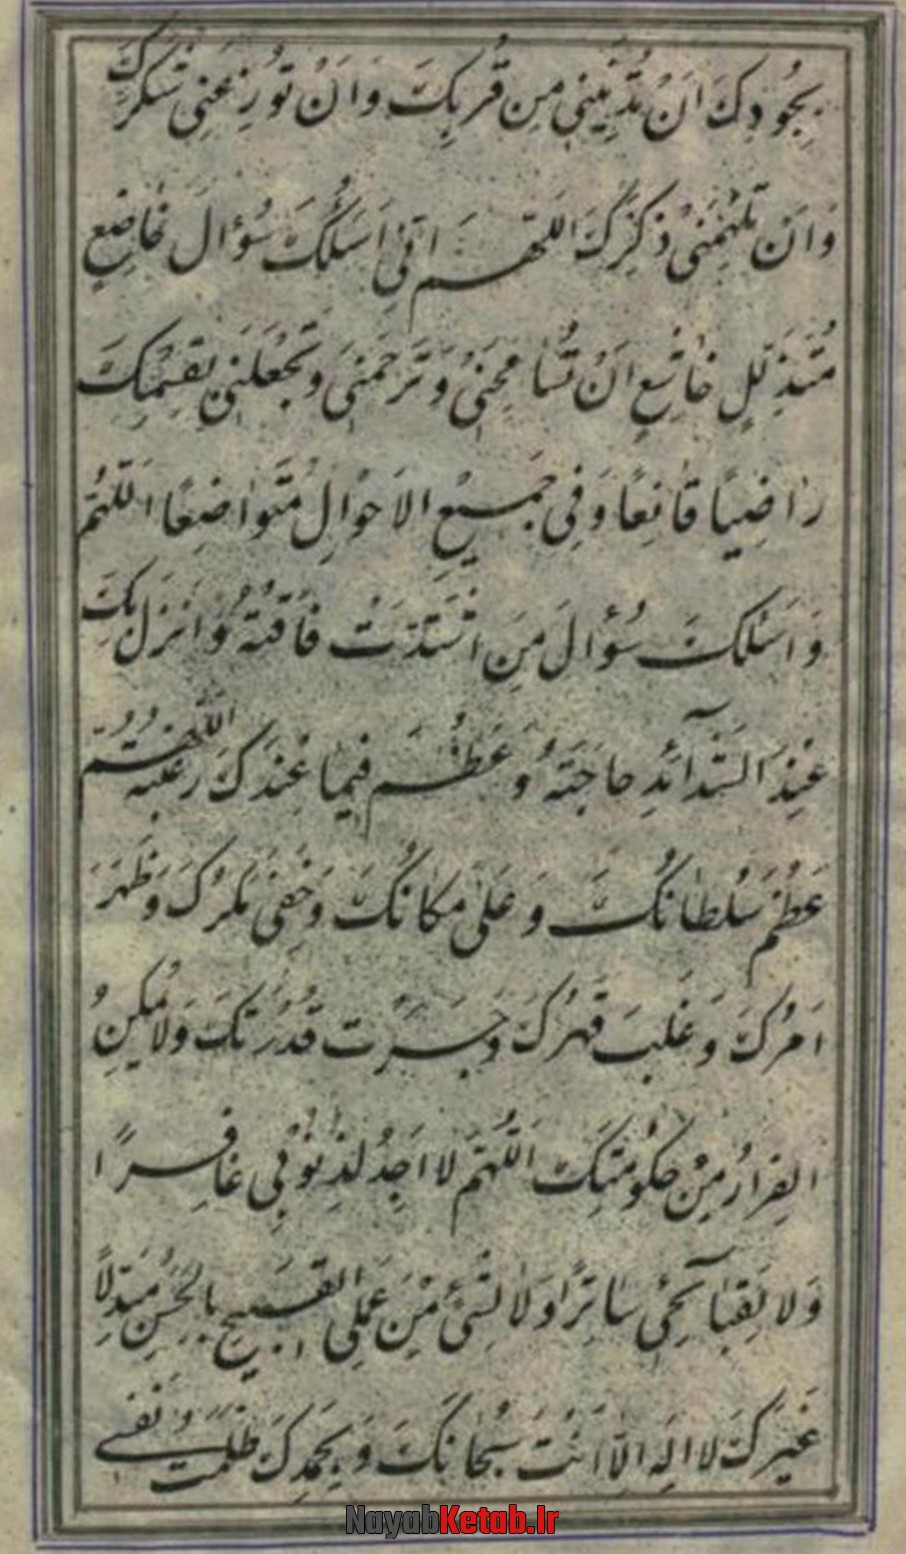 بِجُودِكَ اَنْ تُدْنِيَنِي مِن قُربِكَ وَ اَنْ تُوزِعَنِي شُكْرَكَ
وَ اَن تُلْهِمَنِي ذِكْرَكَ اَللّهُمَّ اِنّي اَسئَلُكَ سُؤالَ خاضِعٍ
مُتَذَلِّلٍ خاشِعٍ اَنْ تُسامِحَنِي وَ تَرْحَمَنِي وَ تَجْعَلَنِي بِقِسمِكَ
راضِيًا قانِعًا وَ فِي جَمِيعِ الاَحْوالِ مُتَواضِعًا اَللّهُمَّ
وَ اَسئَلُكَ سُؤالَ مَنِ اشْتَدَّتْ فاقَتُهُ وَ اَنزَلَ بِكَ
عِندَ الشَّدآئِدِ حاجَتَهُ وَ عَظُمَ فِيما عِندَكَ رَغبَتُهُ اَللّهُمَّ
عَظُمَ سُلطانُكَ وَ عَلى مَكانُكَ وَ خَفِيَ مَكرُكَ وَ ظَهَرَ
اَمرُكَ وَ غَلَبَ قَهرُكَ وَ جَرَت قُدرَتُكَ وَ لا يُمكِنُ
الفِرارُ مِنْ حُكُومَتِكَ اَللّهُمَّ لا اَجِدُ لِذُنُوبِي غافِرًا
وَلا لِقَبآئِحِي ساتِرًا وَ لا لِشَيْءٍ مِنْ عَمَلِيَ القَبِيحِ بِالحَسَنِ مُبَدِّلًا
غَيرَكَ لا اِلهَ اِلّا اَنتَ سُبحانَكَ وَ بِحَمدِكَ ظَلَمتُ نَفسِي
NayabKetab.Ir